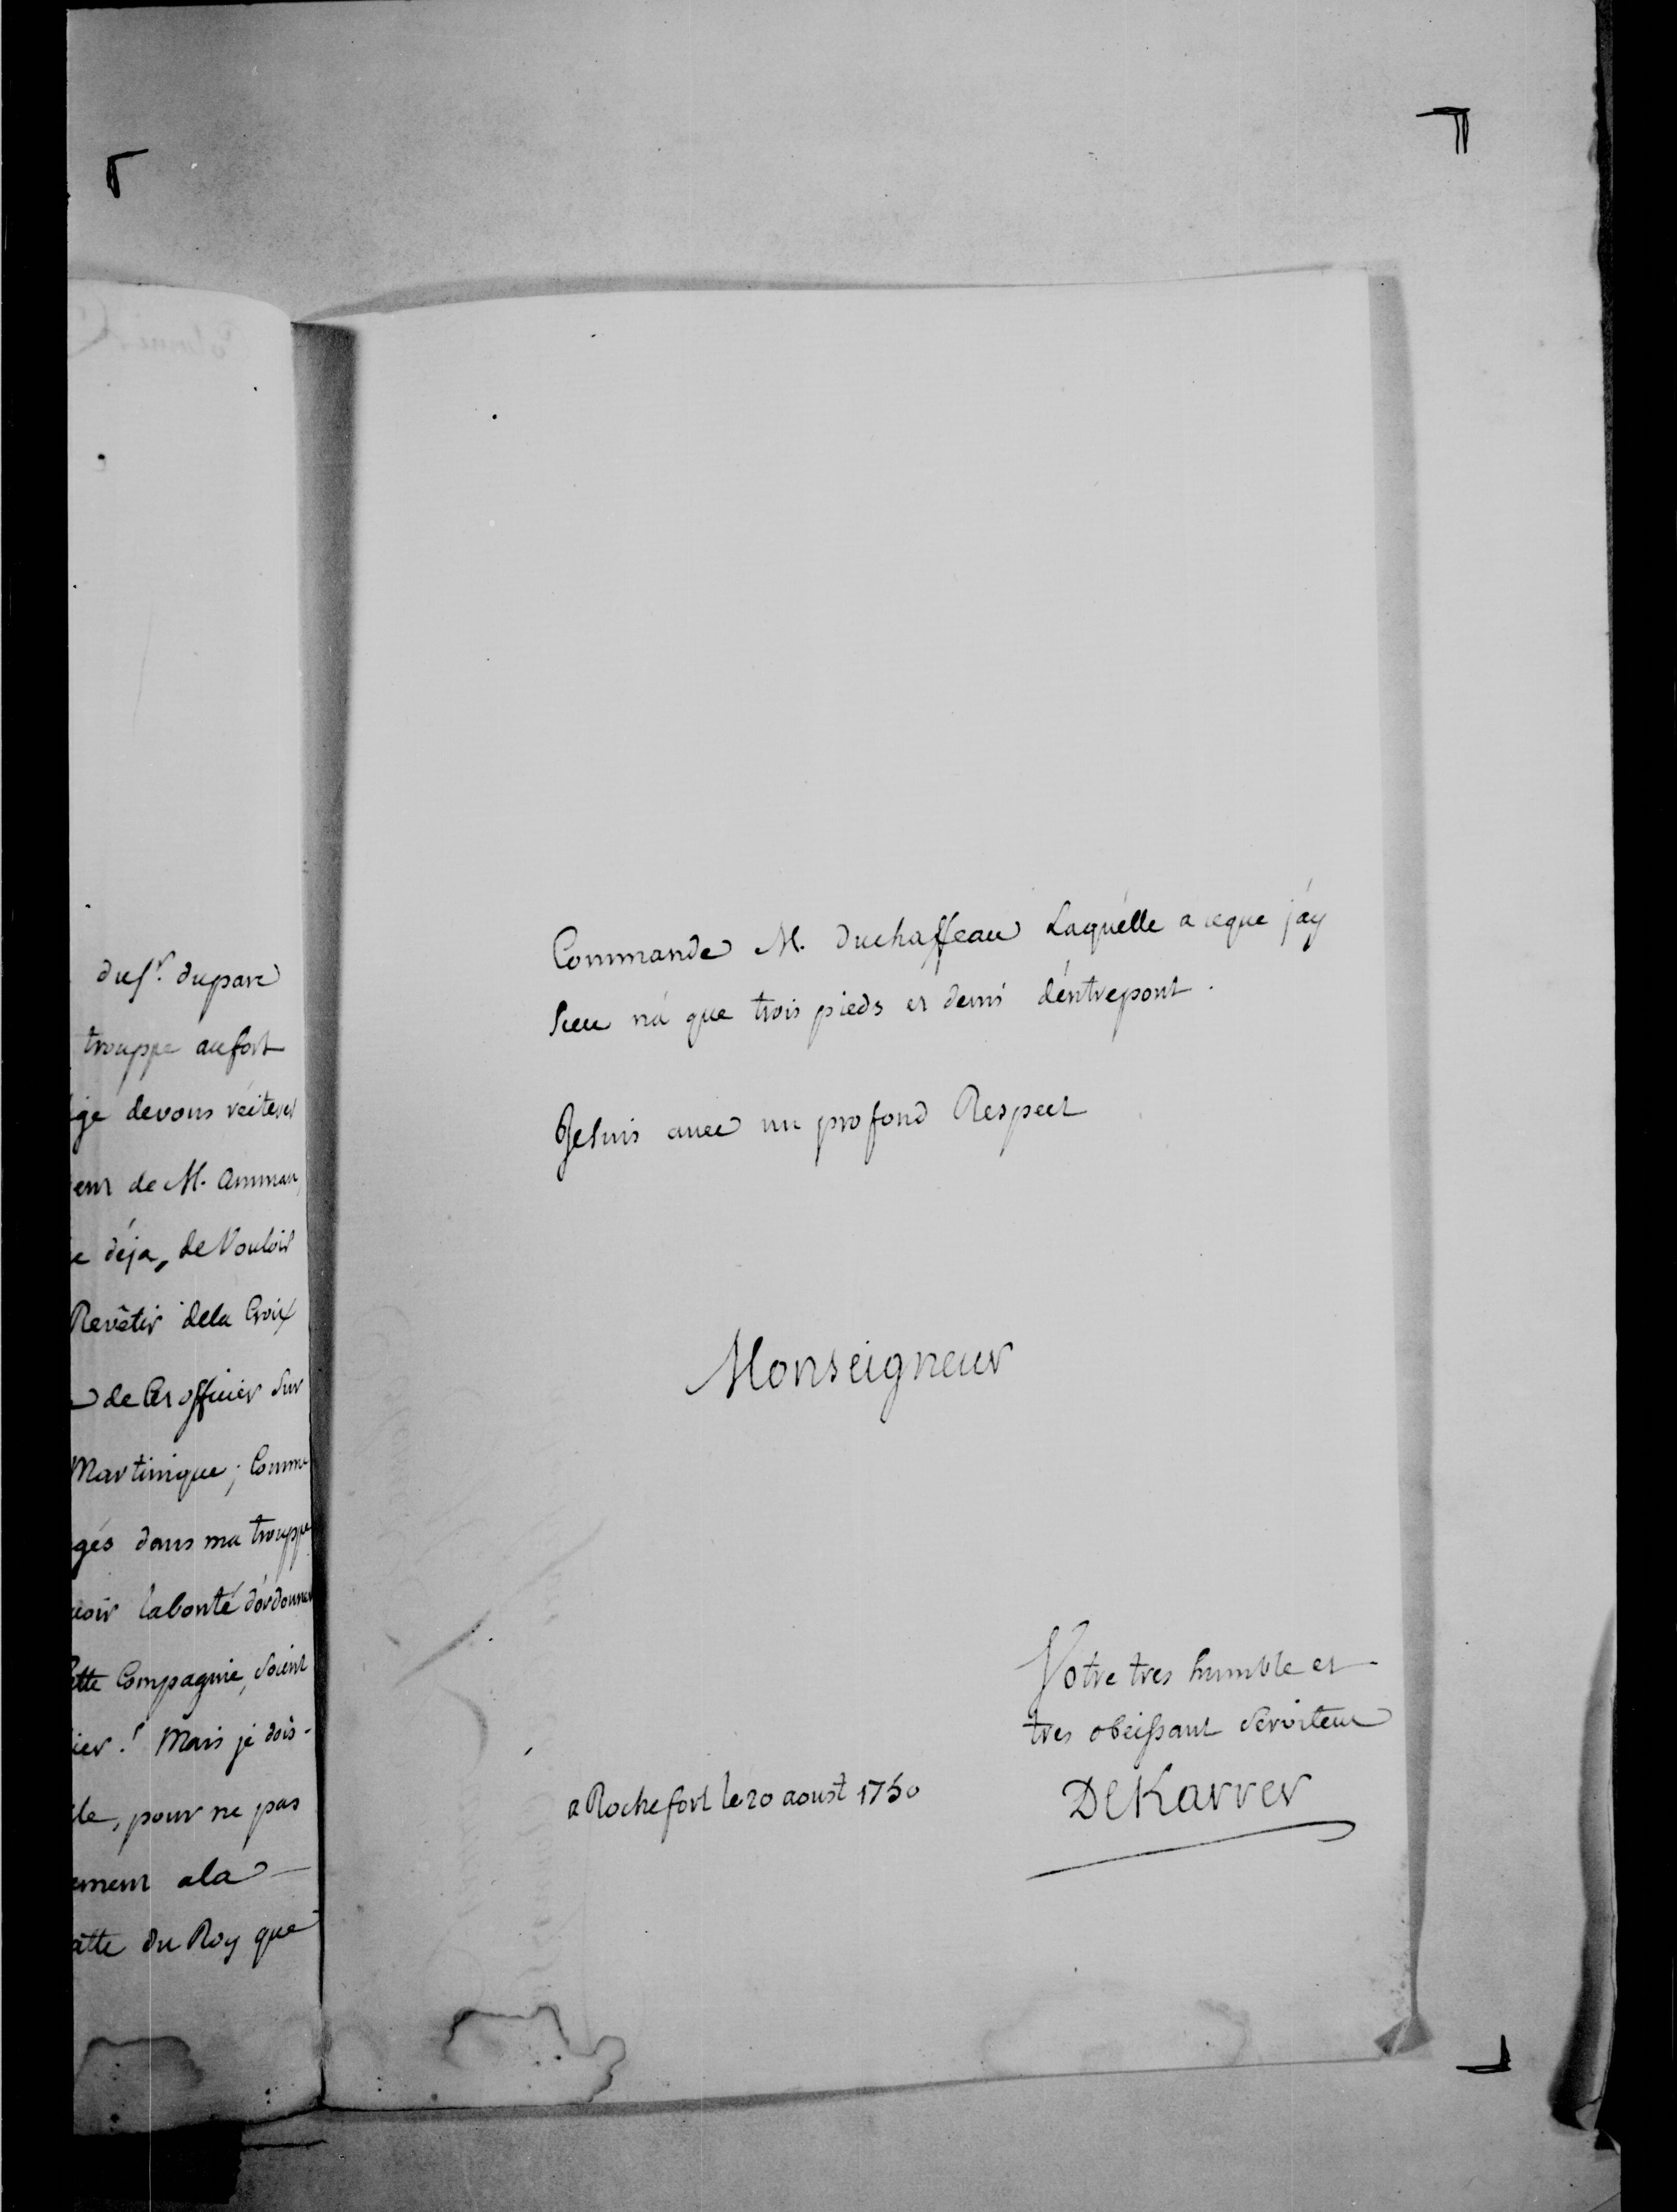 du sr. duparc
trouppe au fort
ge devous reiterer
eur de M. Amman,
e déja, de Vouloir
Revêtir dela Croix
de Cet officier Sur
Martinique; Comme
gés dans ma trouppe
voir labonté d'ordonner
ette Compagnie, Soient
ier! Mais je dois-
le, pour ne pas
ement ala
atte du Roy que
Commande M. duchaffeau Laquelle a ceque j'ay
Sceu n'a que trois pieds et demi d'entrepont.
Je suis avec un profond Respect
Monseigneur
Votre tres humble et
tres obeissant Serviteur
a Rochefort le 20 aoust 1750
DeKarrer